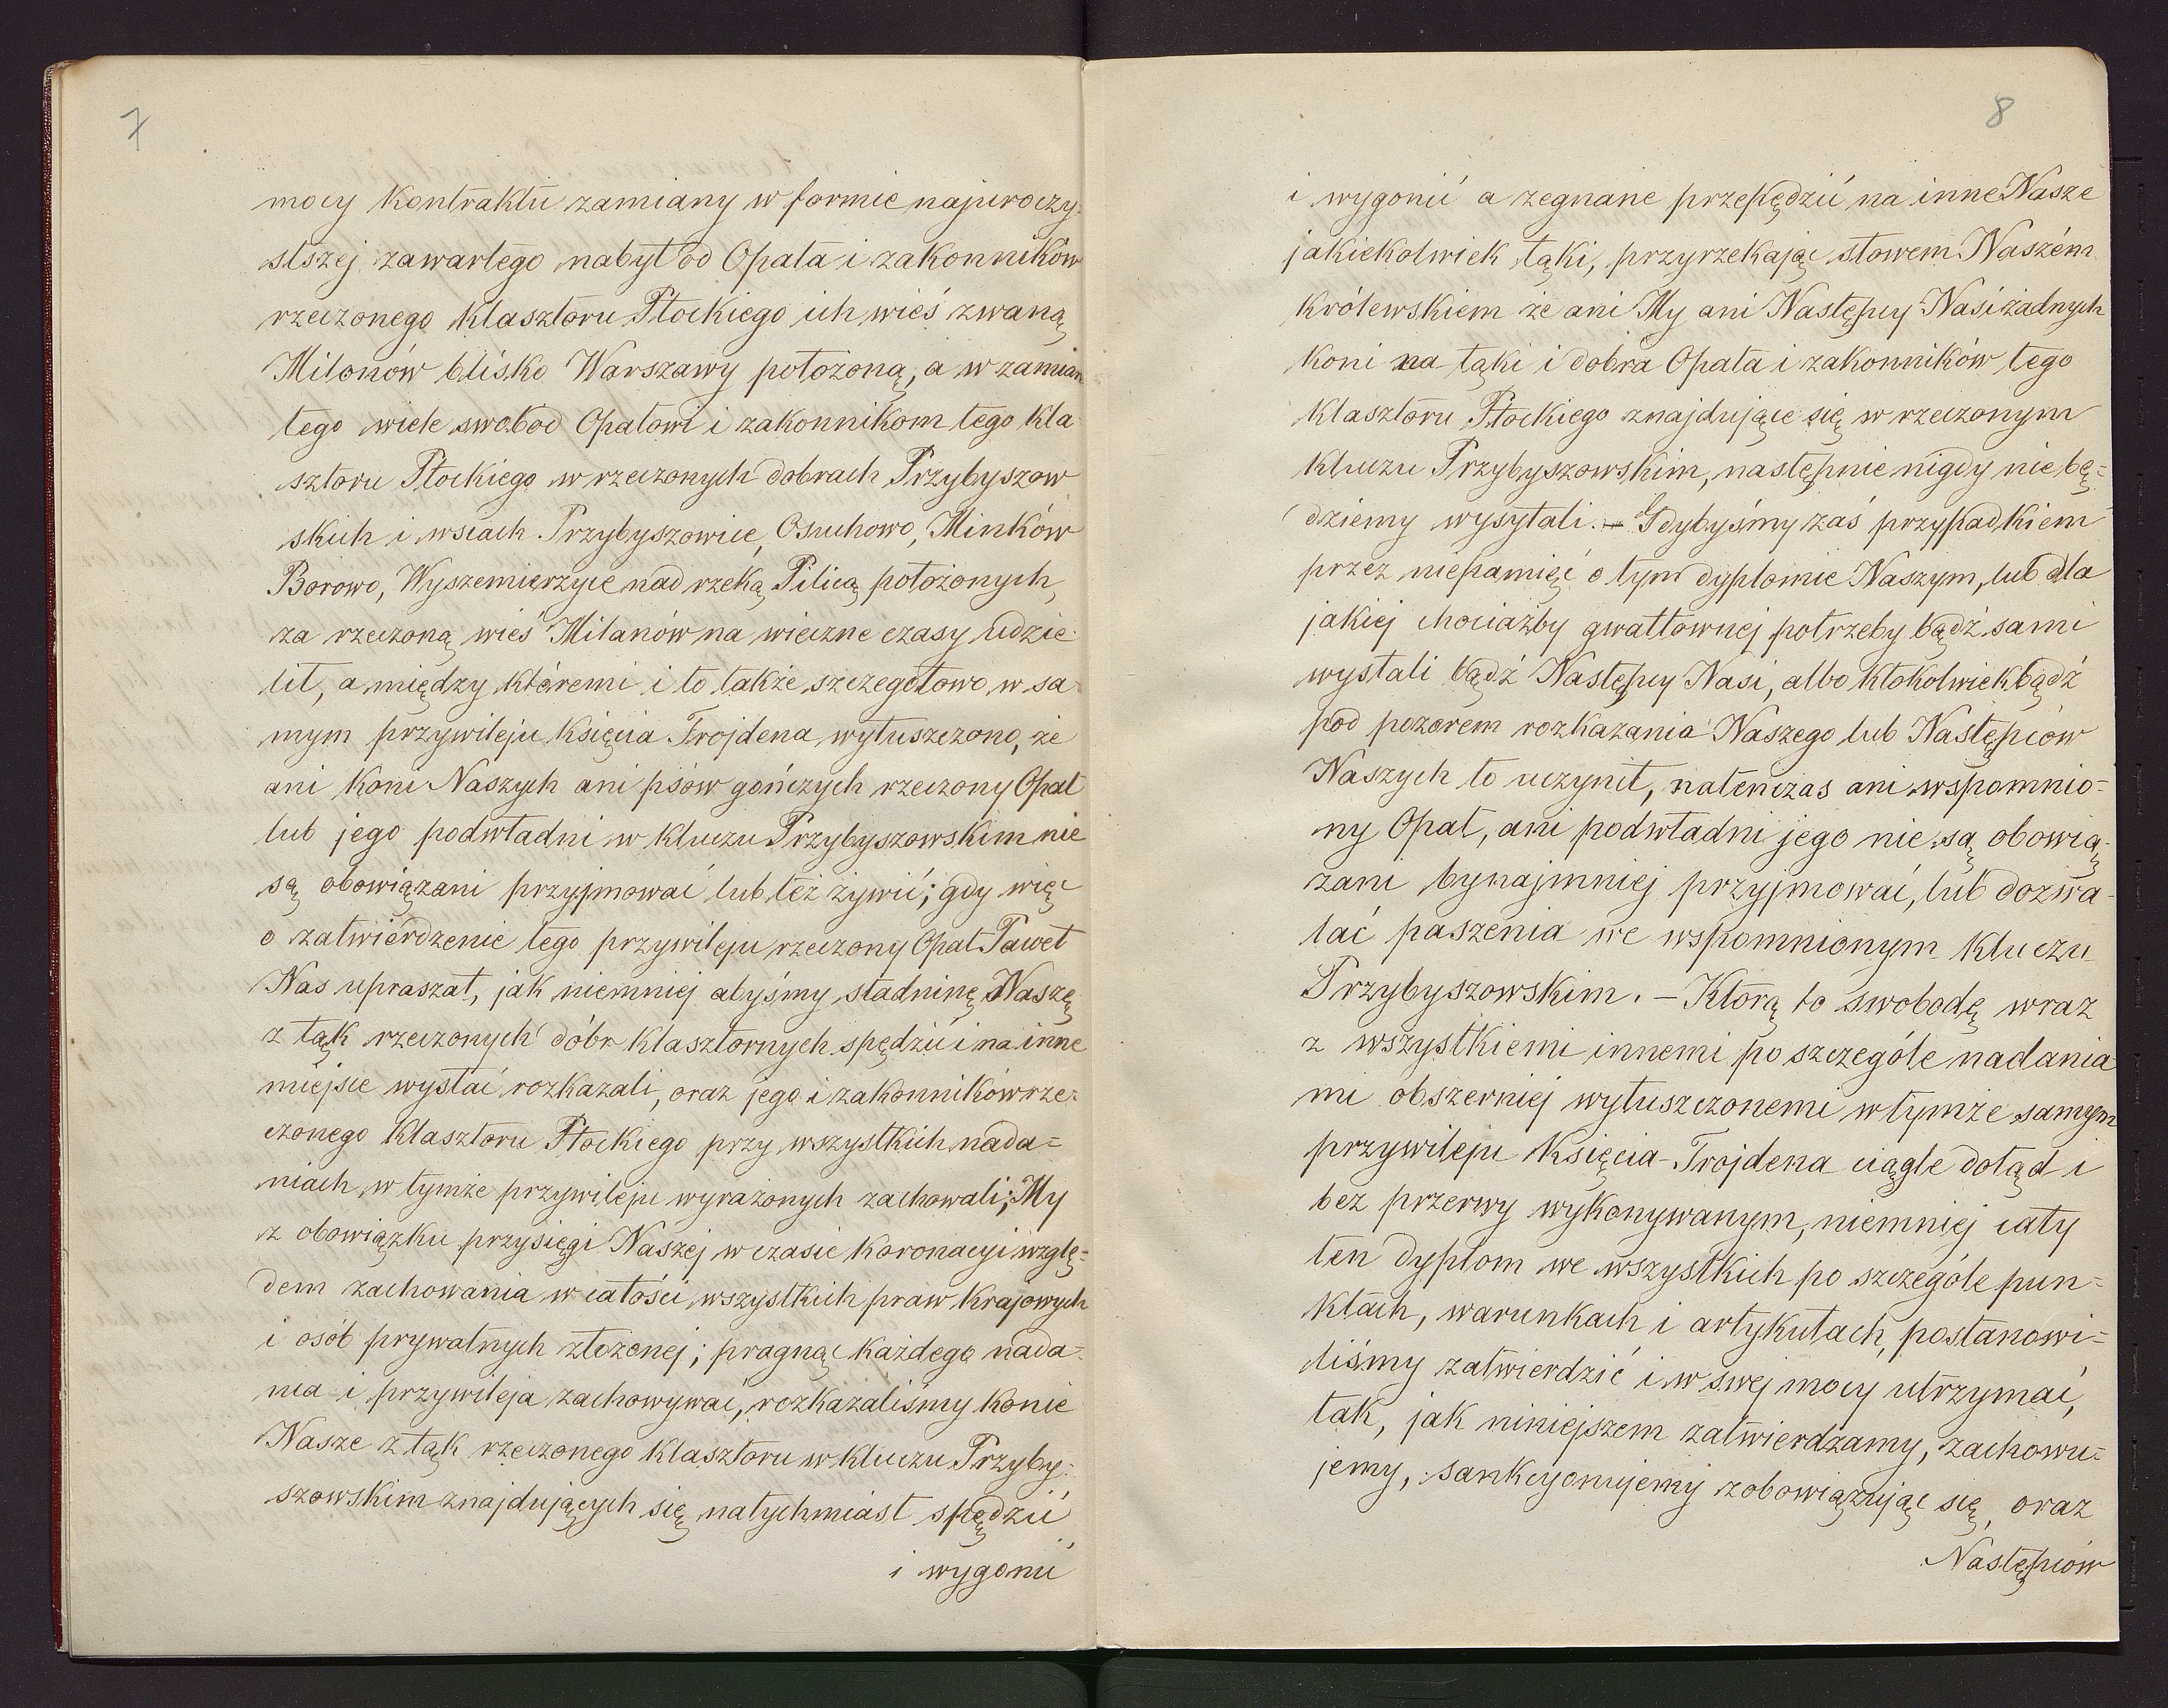 7
mocy kontraktu zamiany w formie najuroczy-
stszej zawartego nabył od Opata i zakonników
rzeczonego klasztoru Płockiego ich wieś zwaną
Milonów blisko Warszawy położoną, a w zamian
tego wiele swobod Opatowi i zakonnikom tego kla
sztoru Płockiego w rzeczonych dobrach Przybyszow
skich i wsiach Przybyszowice, Osuchowo, Minków
Borowo, Wyszemierzyce nad rzeką Pilicą położonych,
za rzeczoną wieś Milanów na wieczne czasy udzie-
lił, a między któremi i to także szczegółowo w sa-
mym przywileju Księcia Trojdena wyłuszczono, że
ani koni Naszych ani psów gończych rzeczony Opat
lub jego podwładni w kluczu Przybyszowskim nie
są obowiązani przyjmować lub też żywić; gdy więc
o zatwierdzenie tego przywileju rzeczony Opat Paweł
Nas upraszał, jak niemniej abyśmy stadninę Naszę
z łąk rzeczonych dóbr klasztornych spędzić i na inne
miejsce wysłać rozkazali, oraz jego i zakonników rze-
czonego Klasztoru Płockiego przy wszystkich nada=
niach w tymże przywileju wyrażonych zachowali; My
z obowiązku przysięgi Naszej w czasie koronacyi wzglę=
dem zachowania w całości wszystkich praw krajowych
i osób prywatnych złożonej; pragnąc każdego nada-
nia i przywileja zachowywać, rozkazaliśmy konie
Nasze z łąk rzeczonego klasztoru w kluczu Przyby-
szowskim znajdujących się natychmiast spędzić
i wygonić
8
i wygonić a zegnane przepędzić na inne Nasze
jakiekolwiek łąki, przyrzekając słowem Naszém
królewskiem że ani My ani Następcy Nasi żadnych
koni na łąki i dobra Opata i zakonników tego
klasztoru Płockiego znajdujące się w rzeczonym
kluczu Przybyszowskim, następnie nigdy nie bę=
dziemy wysyłali. – Gdybyśmy zaś przypadkiem
przez niepamięć o tym dyplomie Naszym, lub dla
jakiej chociażby gwałtownej potrzeby bądź sami
wysłali bądź Następcy Nasi, albo ktokolwiekbądź
pod pozorem rozkazania Naszego lub Następców
Naszych to uczynił, natenczas ani wspomnio=
ny Opat, ani podwładni jego nie są obowią-
zani bynajmniej przyjmować, lub dozwa-
lać paszenia we wspomnionym kluczu
Przybyszowskim. – Którą to swobodę wraz
z wszystkiemi innemi po szczególe nadania
mi obszerniej wyłuszczonemi w tymże samym
przywileju Księcia Trojdena ciągle dotąd i
bez przerwy wykonywanym, niemniej cały
ten dyplom we wszystkich po szczególe pun=
ktach, warunkach i artykułach, postanowi=
liśmy zatwierdzić i w swej mocy utrzymać,
tak, jak niniejszem zatwierdzamy, zachowu=
jemy, sankcyonujemy zobowiązując się, oraz
Następców